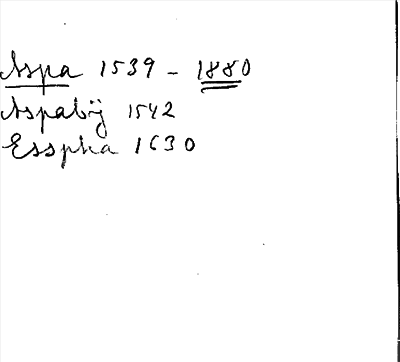 Aspa 1539 - 1880
Aspabÿ 1542
Esspha 1630